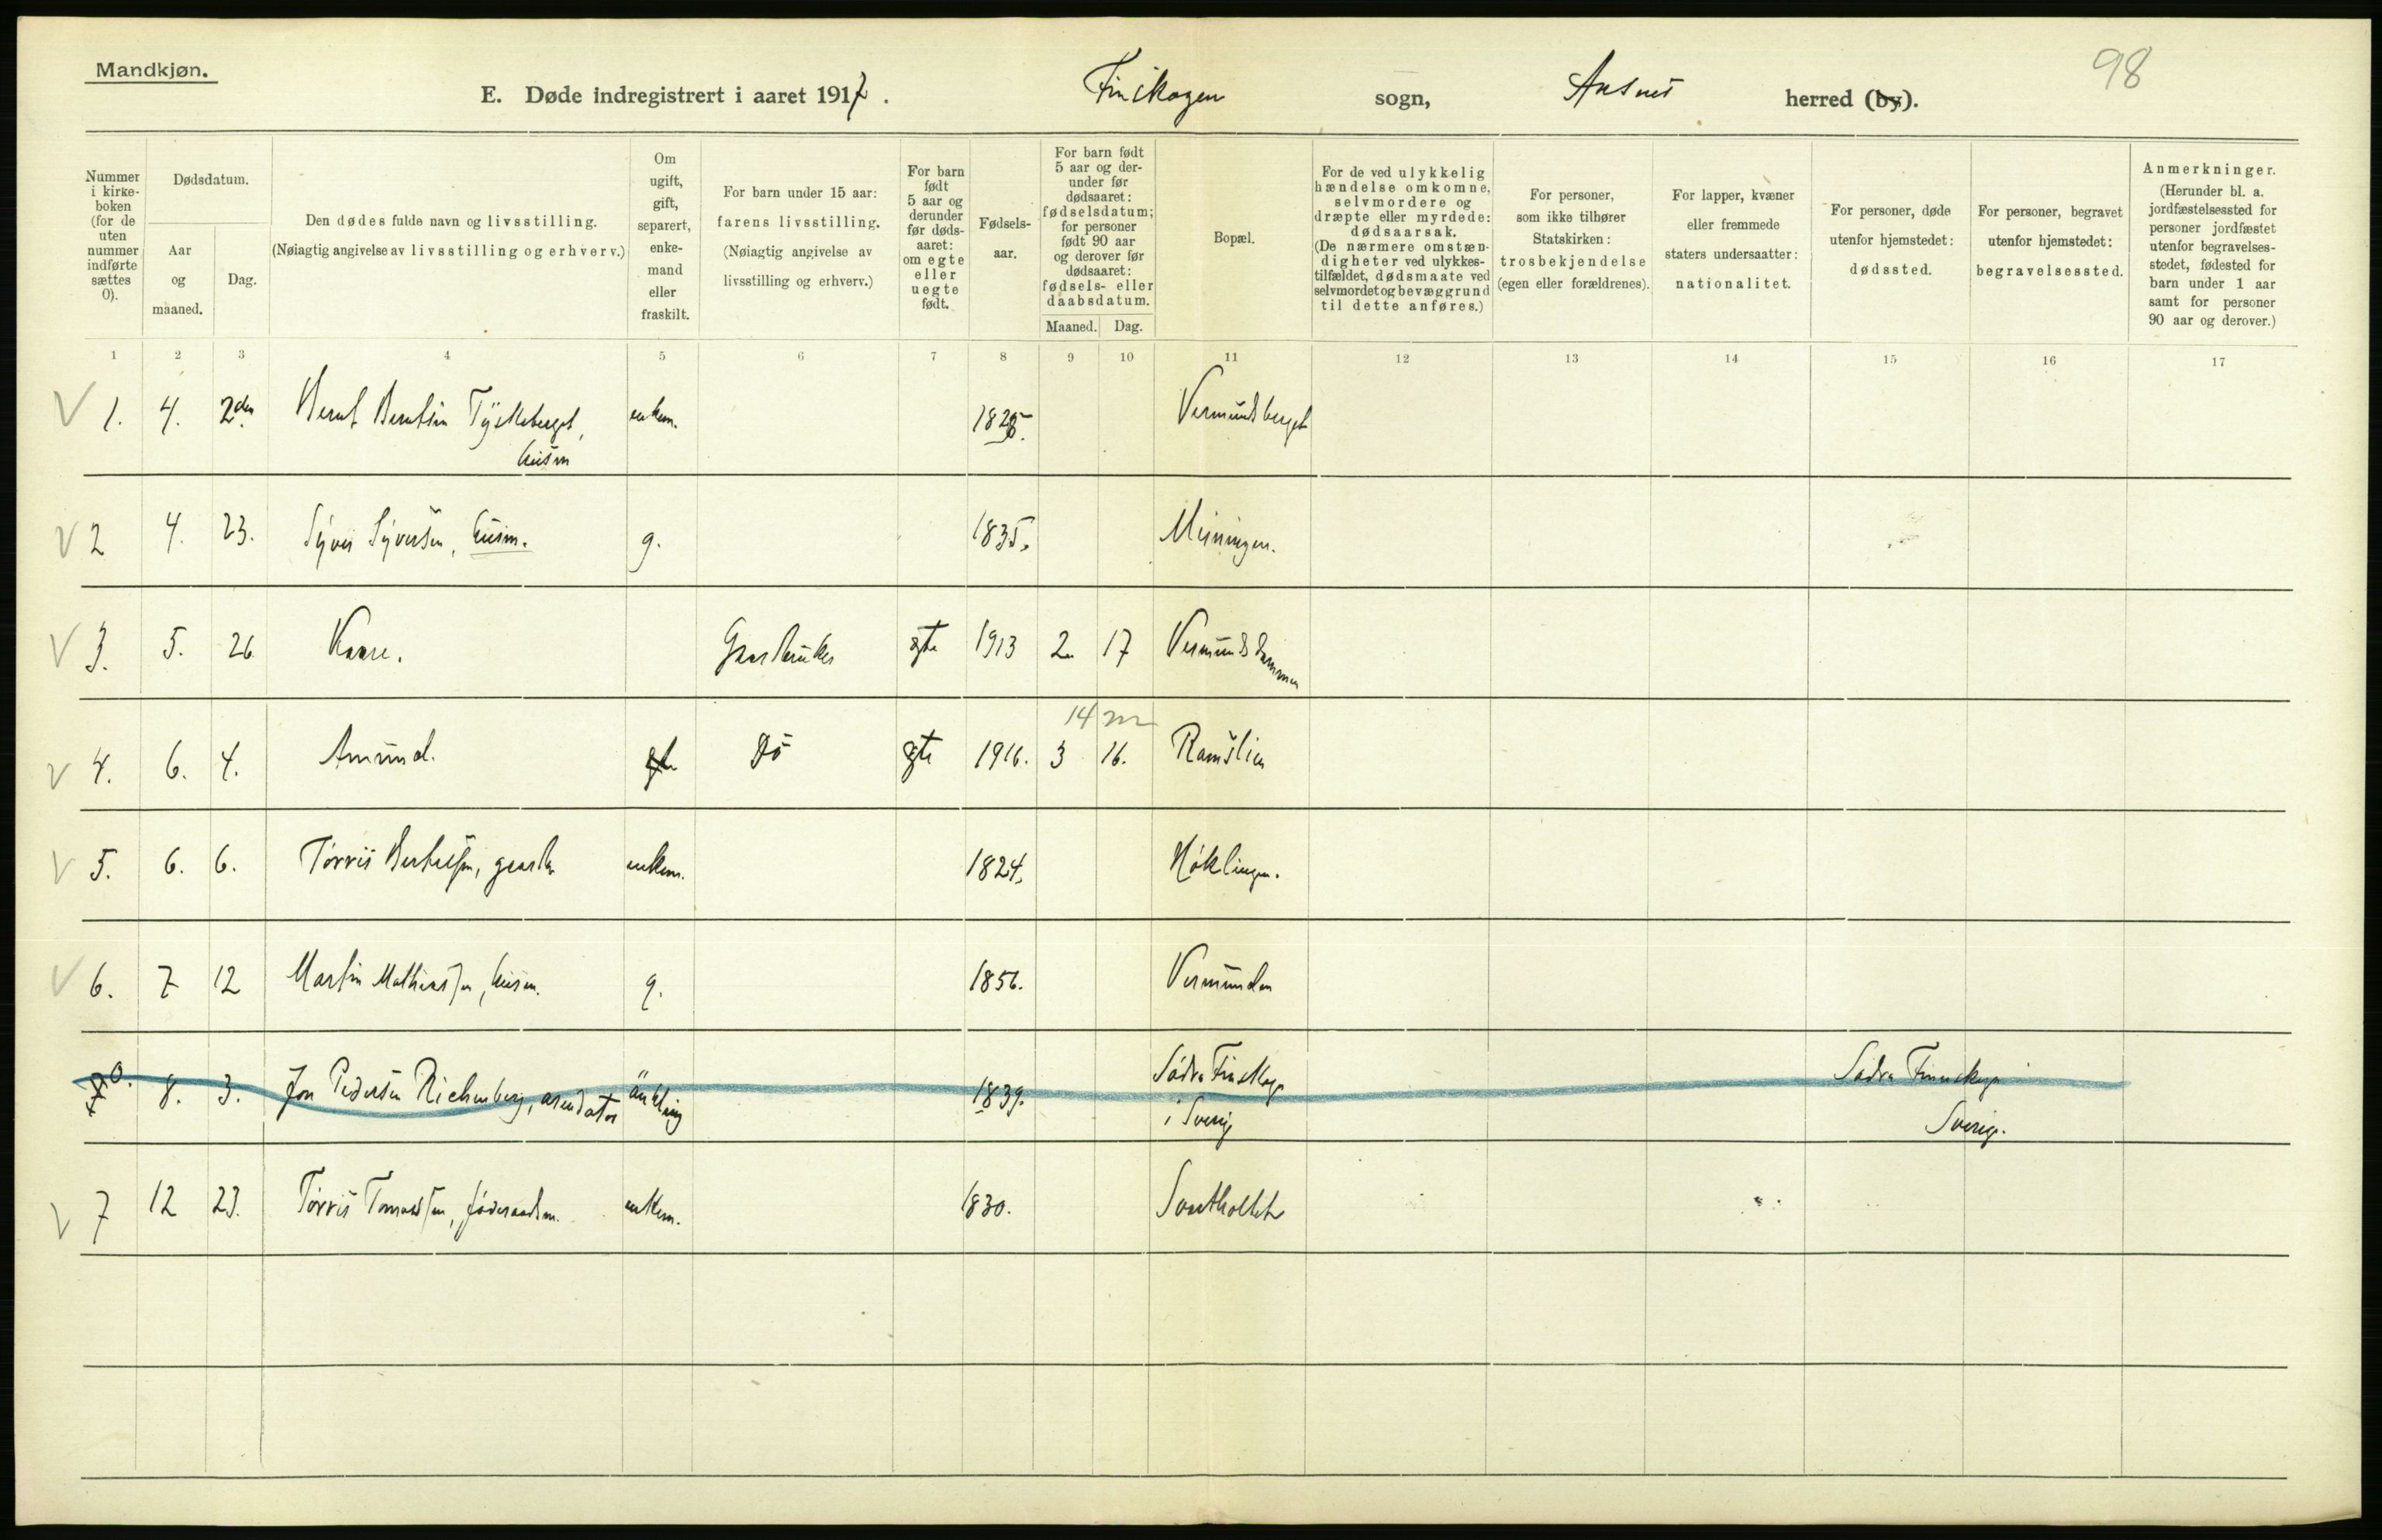 Mandkjøn.
98
E. Døde indregistrert i aaret 1917.
Finskogen sogn, Aasnes herred (by).
Nummer i kirke-boken (for de uten nummer indførte sættes 0).
Dødsdatum.
Aar og maaned.
Dag.
Den dødes fulde navn og livsstilling.
(Nøiagtig angivelse av livsstilling og erhverv.)
Om ugift, gift, separert, enke-mand eller fraskilt.
For barn under 15 aar: farens livsstilling.
(Nøiagtig angivelse av livsstilling og erhverv.)
For barn født 5 aar og derunder før døds-aaret: om egte eller uegte født.
Fødsels-aar.
For barn født 5 aar og der-under før dødsaaret: fødselsdatum; for personer født 90 aar og derover før dødsaaret: fødsels- eller daabsdatum.
Maaned. Dag.
Bopæl.
For de ved ulykkelig hændelse omkomne, selvmordere og dræpte eller myrdede: dødsaarsak.
(De nærmere omstæn-digheter ved ulykkes-tilfældet, dødsmaate ved selvmordet og bevæggrund til dette anføres.)
For personer, som ikke tilhører Statskirken: trosbekjendelse (egen eller forældrenes).
For lapper, kvæner eller fremmede staters undersaatter: nationalitet.
For personer, døde utenfor hjemstedet: dødssted.
For personer, begravet utenfor hjemstedet: begravelsessted.
Anmerkninger.
(Herunder bl. a. jordfæstelsessted for personer jordfæstet utenfor begravelses-stedet, fødested for barn under 1 aar samt for personer 90 aar og derover.)
1 2 3 4 5 6 7 8 9 10 11 12 13 14 15 16 17
V 1. 4. 2den Bernt Berntsen Tyskeberget, enkem. Vermundsberget
husm
V 2 4. 23. Syver Syversen, husm. g. 1835.
V 3. 5. 26 Kaare. Gaardbruker egte 1913 2 17 Vermundsdammen
14 m
V 4. 6. 4. Amund. egte Do egte 1916. 3 16. Ramslien
V 5. 6. 6. Torris Bertelsen, gaardbr enkem. 1824. Nøklingen.
V 6. 7 12 Martin Mathiassen, husm. g. 1856. Vermunden
7 0. 8. 3. Jon Pedersen, arendator änkling 1839. Södra Finskoga Södra Finnskoga
i Sverige Sverige.
V 7 12 23. Torris, føderaadsm. enkem. 1830.